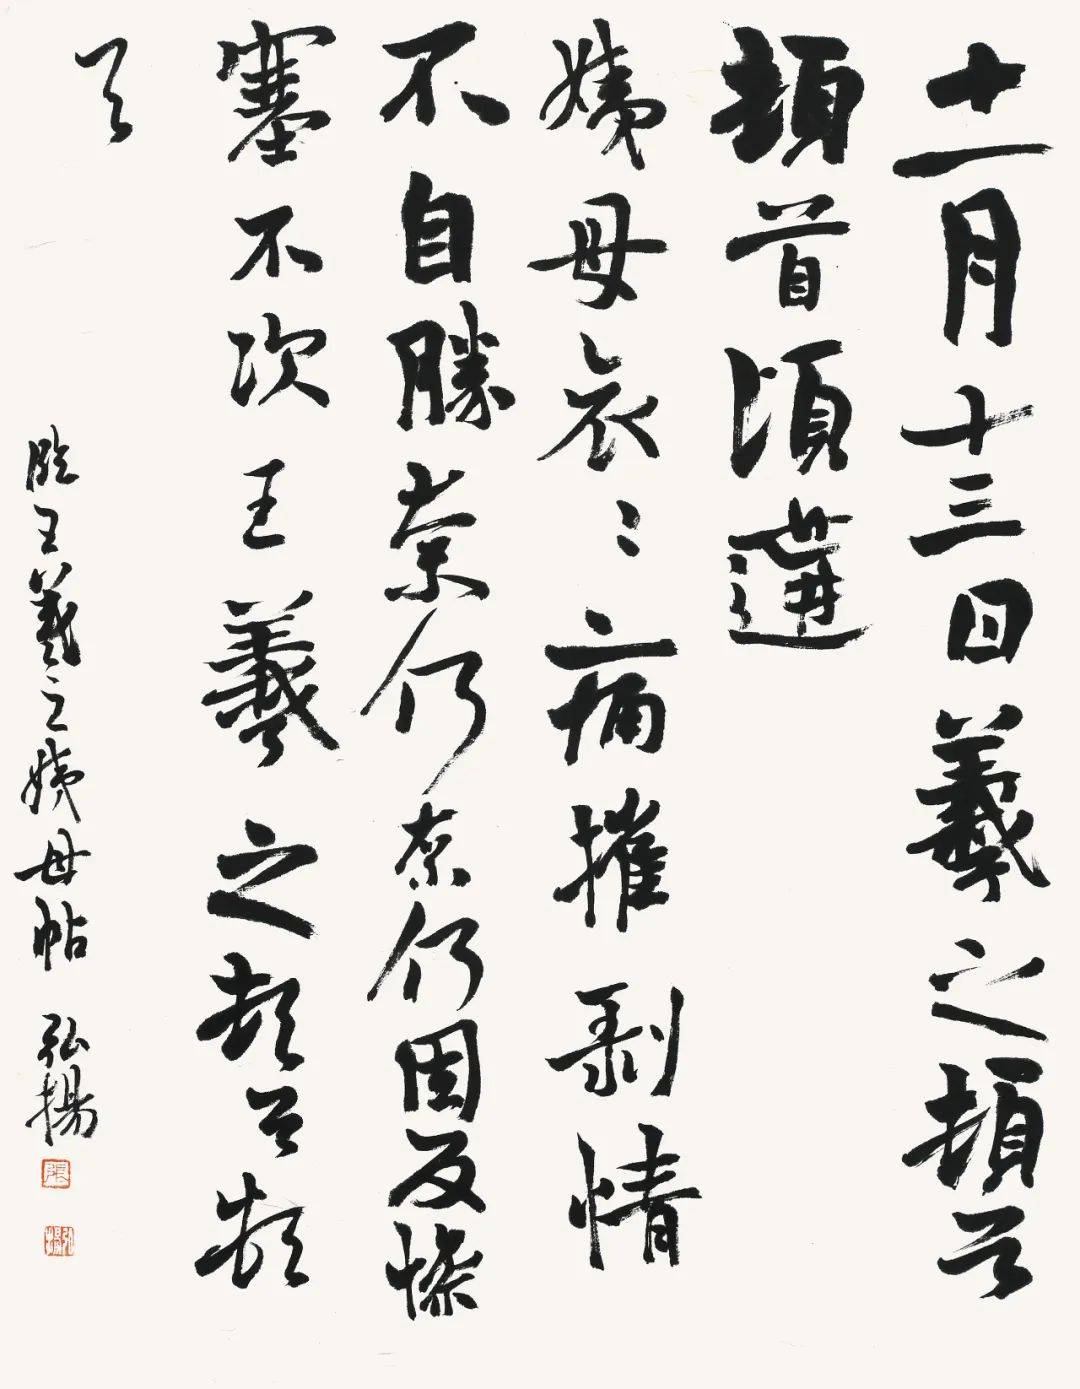 十一月十三日羲之頓首
頓首頃遘
姨母哀〻痛摧剥情
不自勝奈何奈何因反慘
塞不次王羲之頓首頓
首
臨王羲之姨母帖 弘揚
張
弘揚